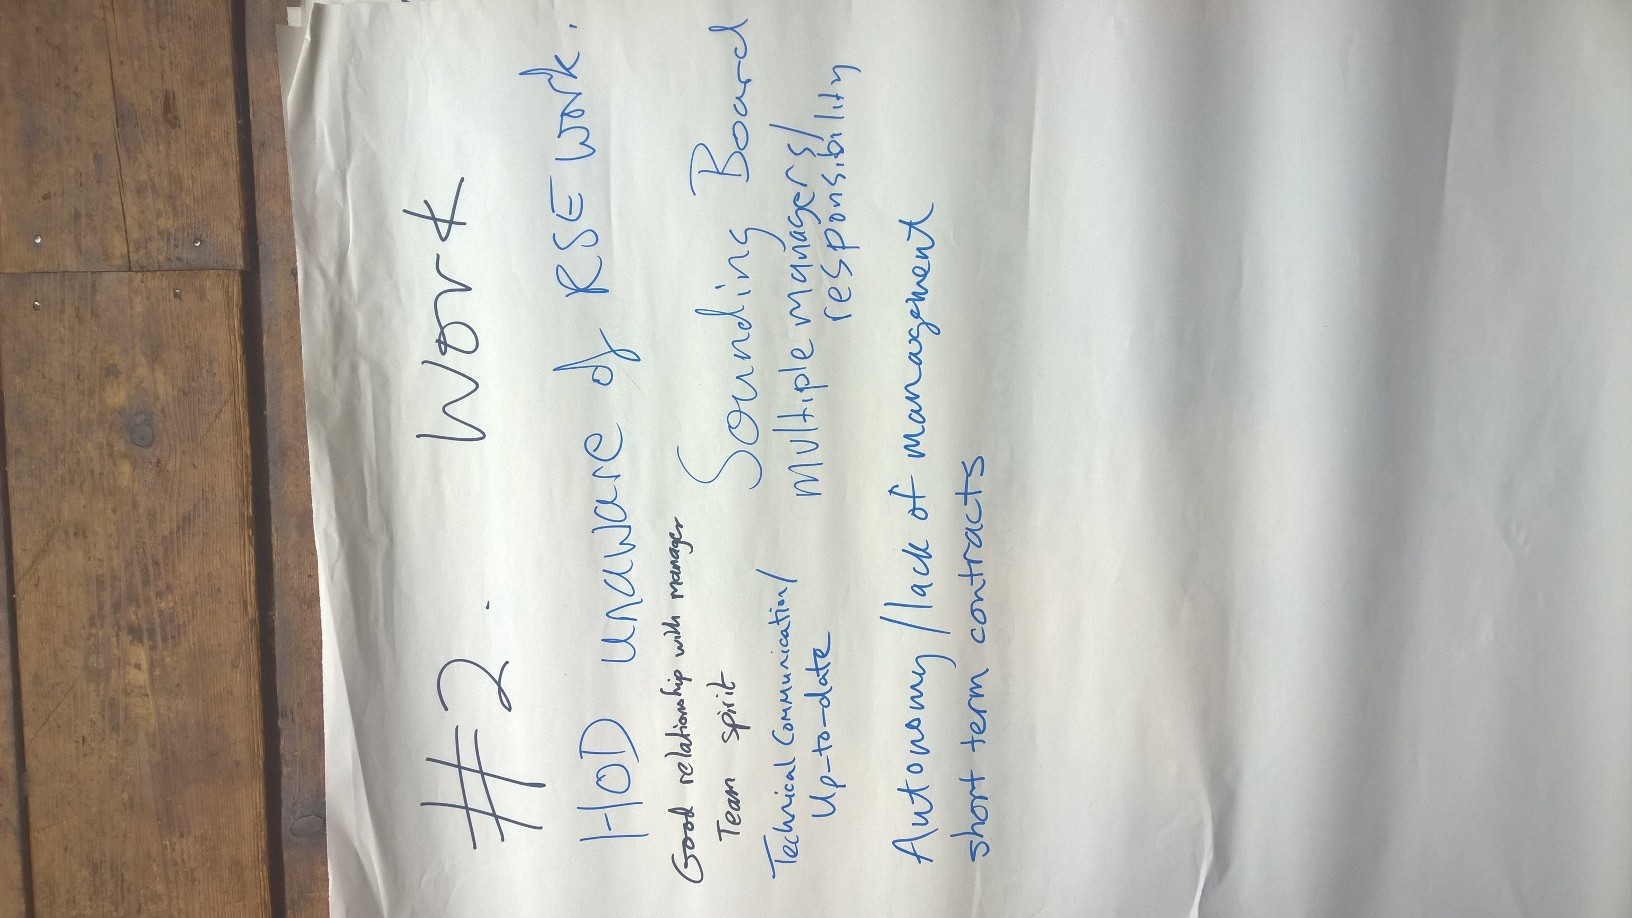 #2. Work
HOD unaware of RSE work.
Good relationship with manager
Team spirit
Sounding Board
Technical Communication/
Up-to-date
multiple managers/
responsibility
Autonomy/lack of management
short term contracts